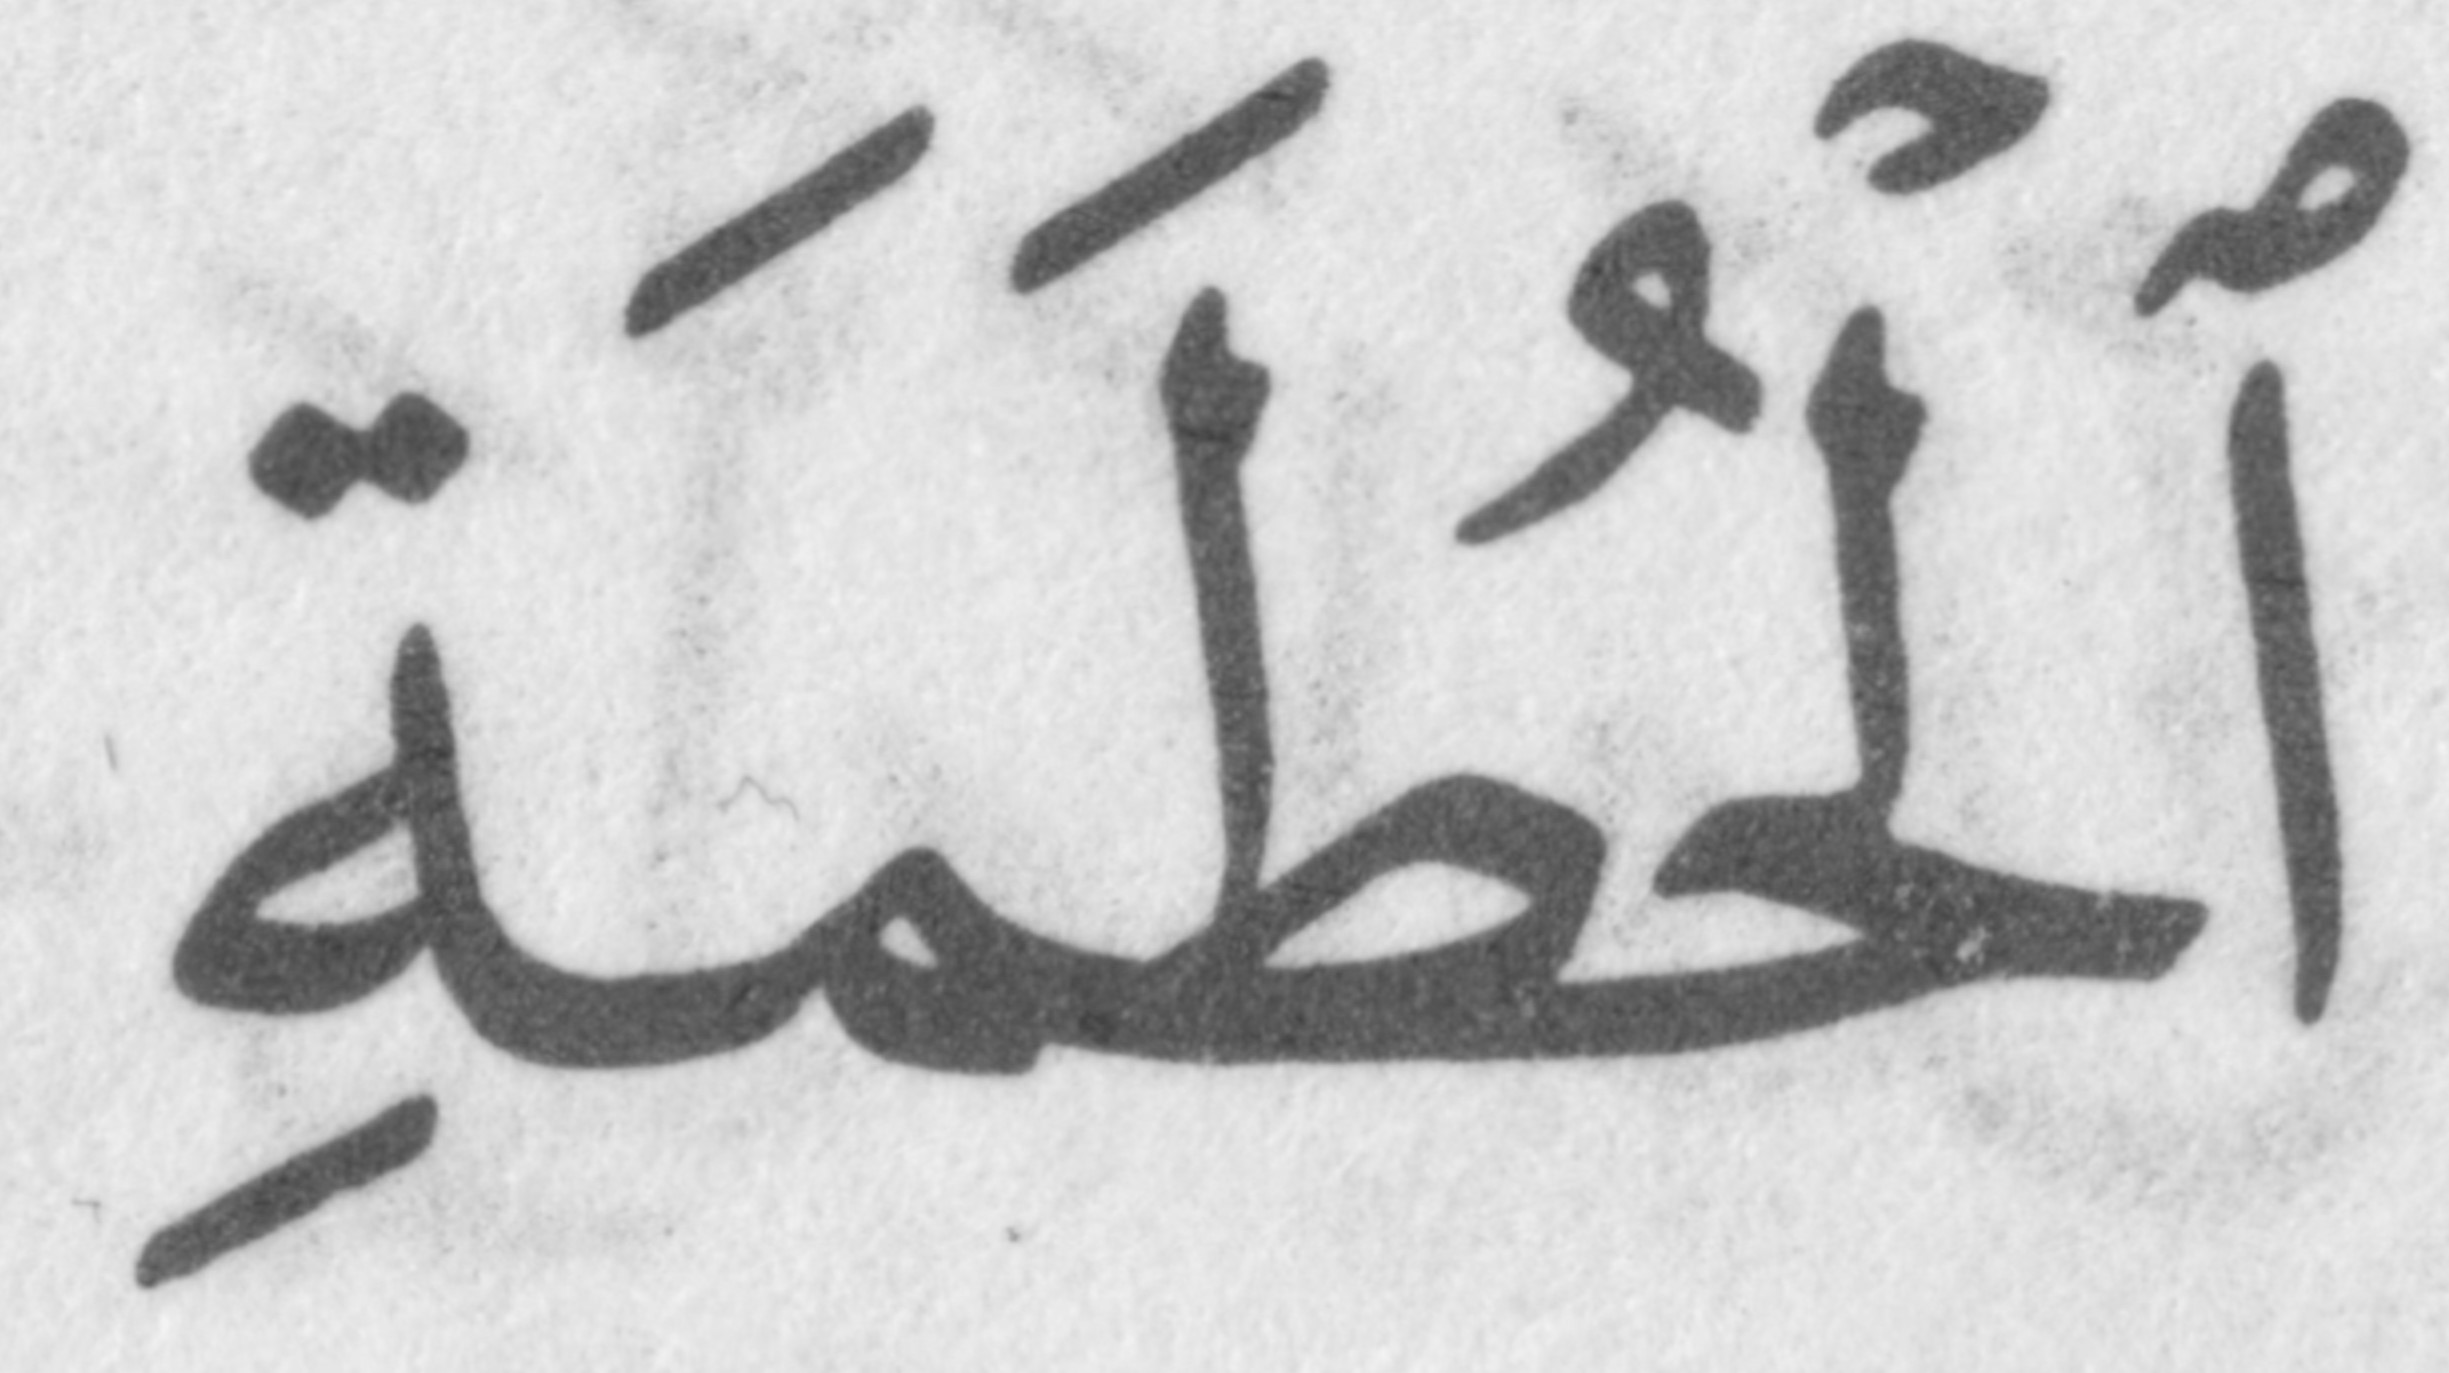 ٱلْحُطَمَةِ